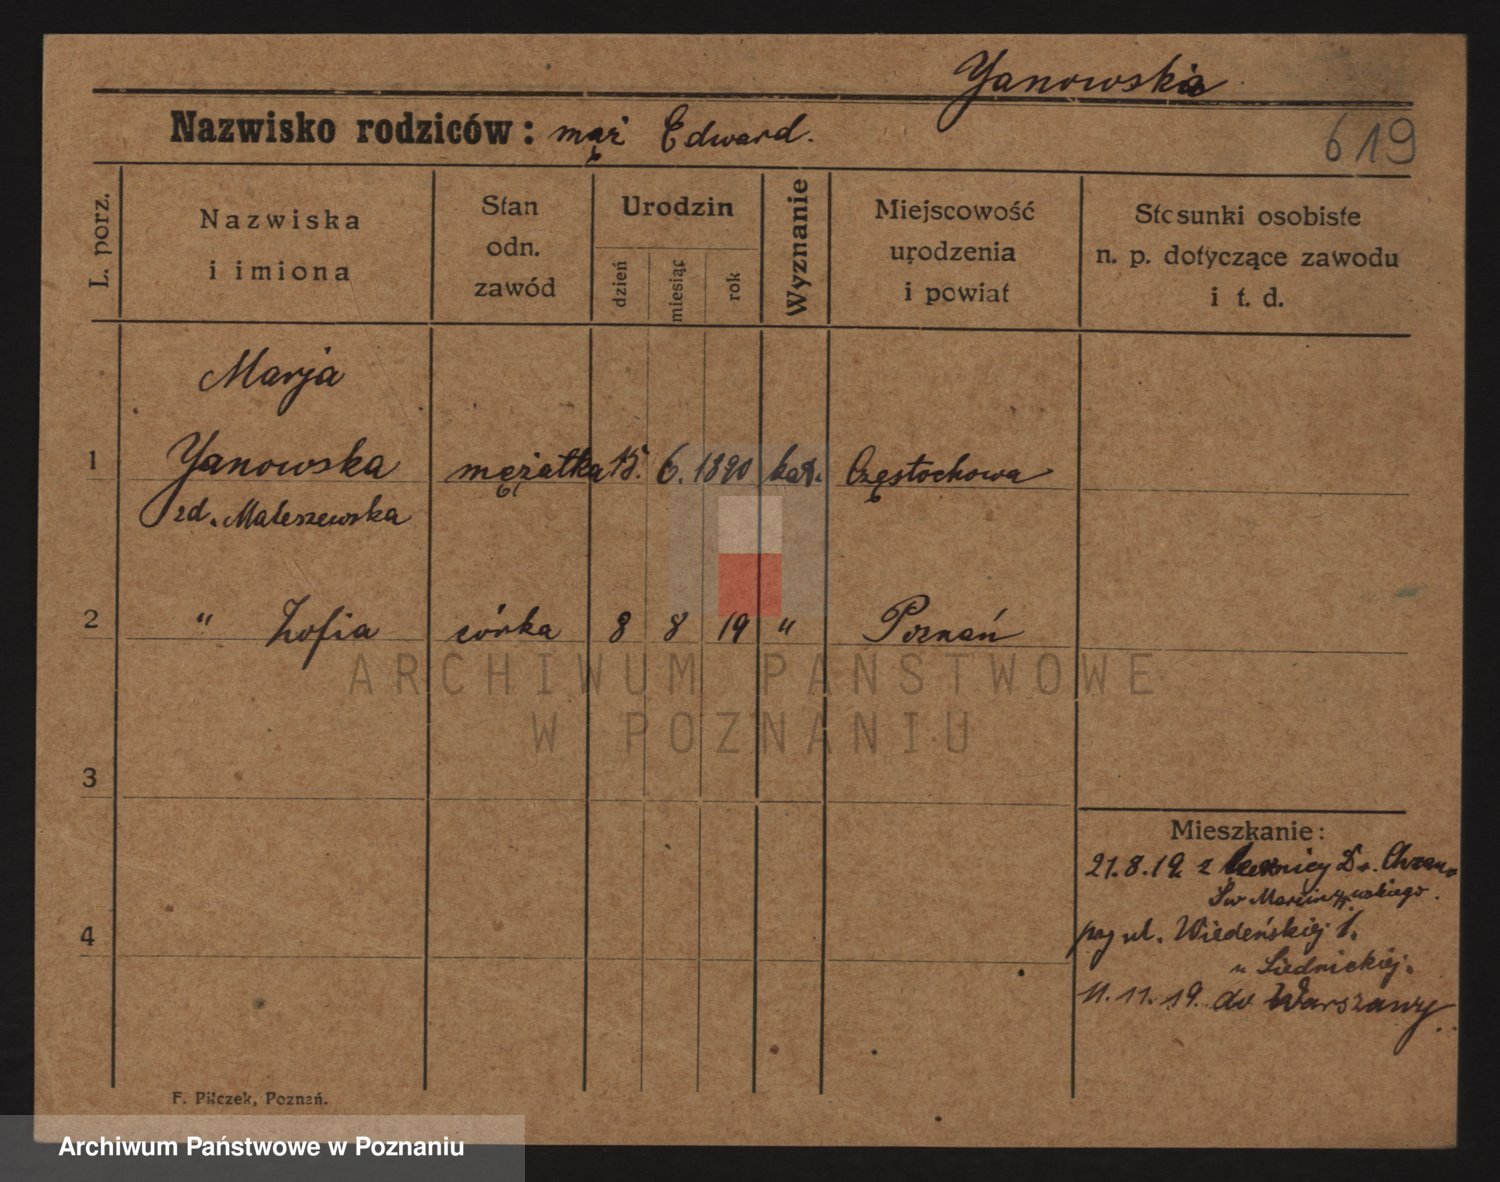 Yanowska
Nazwisko rodziców: mąż Edward.
619
L. porz.
Nazwiska
i imiona
Stan
odn.
zawód
Urodzin
dzień
miesiąc
rok
Wyznanie
Miejscowość
urodzenia
i powiat
Stosunki osobiste
n. p. dotyczące zawodu
i t. d.
Marja
1 Yanowska mężatka 15. 6. 1890 kat. Częstochowa
zd. Maleszewska
2 " Zofia córka 8 8 19 " Poznań
ARCHIWUM PAŃSTWOWE
W POZNANIU
3
Mieszkanie:
21.8.19. z Dr. Chrzan
Św Marcin
4
przy ul. Wiedeńskiej 1.
u
11.11.19. do Warszawy
F. Pilczek, Poznań.
Archiwum Państwowe w Poznaniu